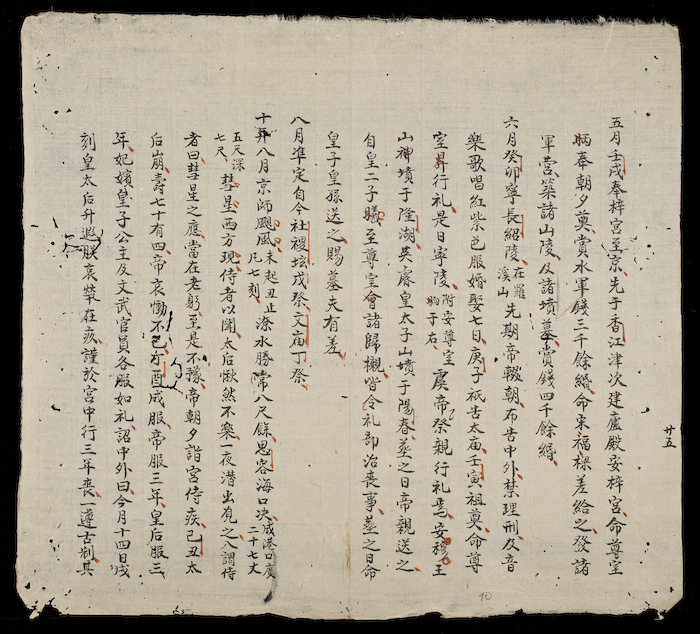 五月壬戌奉梓宮至京先于香江津次建廬殿安梓宮命尊室
昞奉朝夕奠賞水軍錢三千餘緡命宋福椂差給之發諸
軍營築諸山陵及諸墳墓賞錢四千餘緡
六月癸卯寧長紹陵在羅溪山先期帝輟朝布告中外禁理刑及音
樂歌唱紅紫色服婚娶七日庚子祇告太庙壬寅祖奠命尊
室昇行礼是日寧陵附安尊室昫于右虞帝祭親行礼焉安穆王
山神墳于隆湖吳睿皇太子山墳于陽春塟之日帝親送之
自皇二子曦至尊室會諸歸櫬皆令礼部治喪事塟之日命
皇子皇孫送之賜墓夫有差
八月準定自今社稷法戊祭文庙丁祭
十年八月京師颶風未起丑止凡七刻漲水勝常八尺餘思容海口决成港口廣二十七丈
五尺深七尺彗星西方現侍者以聞太后愀然不樂一夜潛出覌之八謂侍
者曰彗星之應當在老躬至是不豫帝朝夕詣宮侍疾己丑太
后崩壽七十有四帝哀慟不已方酉成服帝服三年皇后服三
年妃嬪皇子公主及文武官員各服如礼詔中外曰今月十四日戌
刻皇太后升遐朕哀煢在疚謹於宮中行三年喪一遵古制其
廿五
10